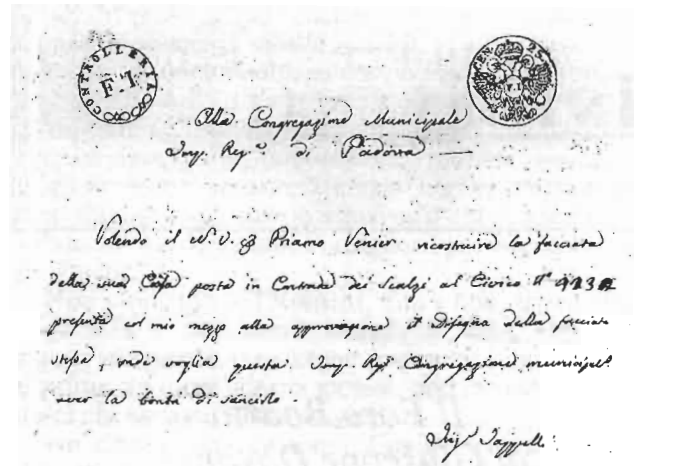 CONTROLLERIA
F. I.
CEN. 25.
F. I.
Alla Congregazione Municipale
Imp. Reg.ᵃ di Padova
Volendo il N. U. Priamo Venier ricostruire la facciata
della sua Casa posta in Contrada dei Scalzi al Civico N.°
presenta col mio mezzo alla approvazione il Disegno della facciata
stessa, voglia questa Imp. Reg. Congregazione municipal.ᵉ
aver la bontà di sancirlo.
Jappelli